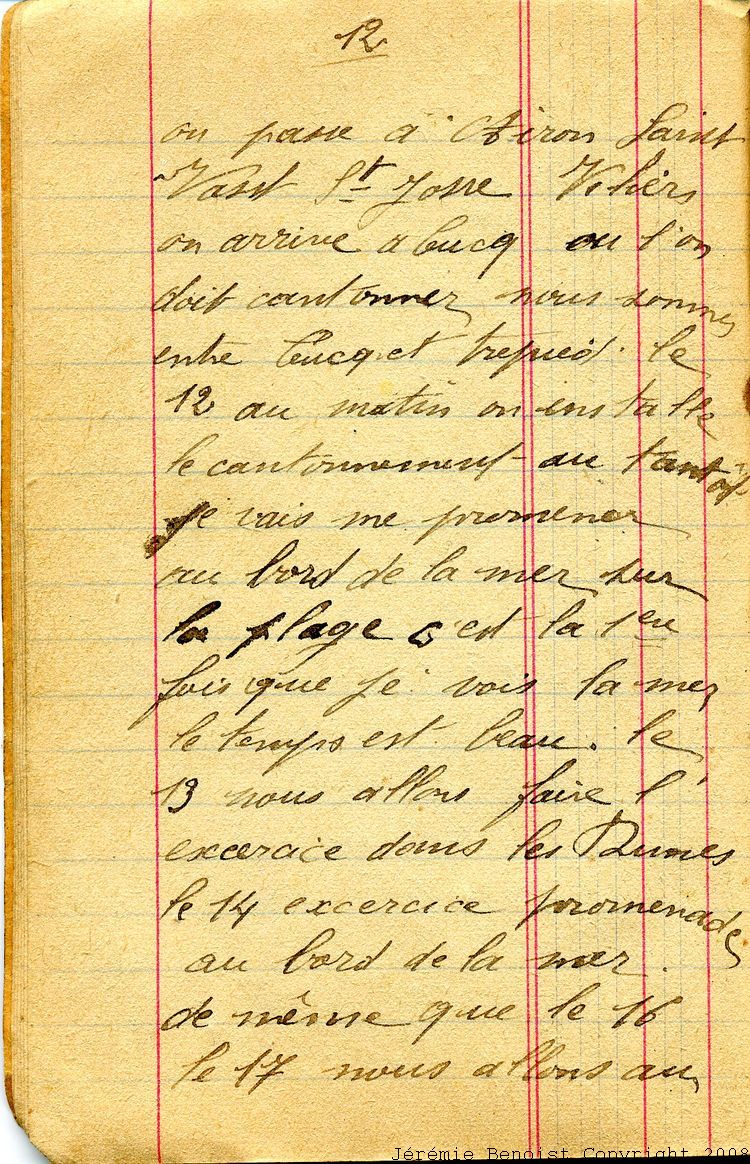 12
on passe a Airon Saint
Vast St Josse Viliers
on arrive a Cucq ou l'on
doit cantonner nous sommes
entre Cucq et trepied. le
12 au matin on installe
le cantonnement au tantot
je vais me promener
au bord de la mer sur
la plage c'est la 1ere
fois que je vois la mer
le temps est beau. le
13 nous allons faire l'
excercice dans les Dunes
le 14 excercice promenade
au bord de la mer.
de même que le 16
le 17 nous allons au
Jérémie Benoist Copyright 2008